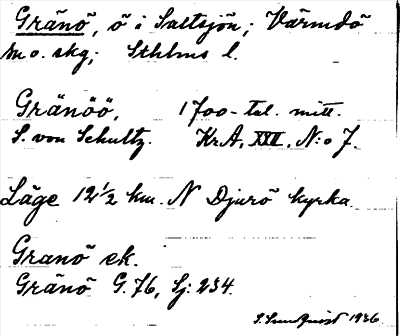 Gränö, ö i Saltsjön; Värmdö
sn o. skg; Sthlms l.
Gränöö, 1700-tal. mitt.
S. von Schultz. KrA, XXII, N:o 7.
Läge 12 1/2 km. N Djurö kyrka.
Granö ek.
Gränö G. 76, Sj: 234.
S. Sundquist 1936